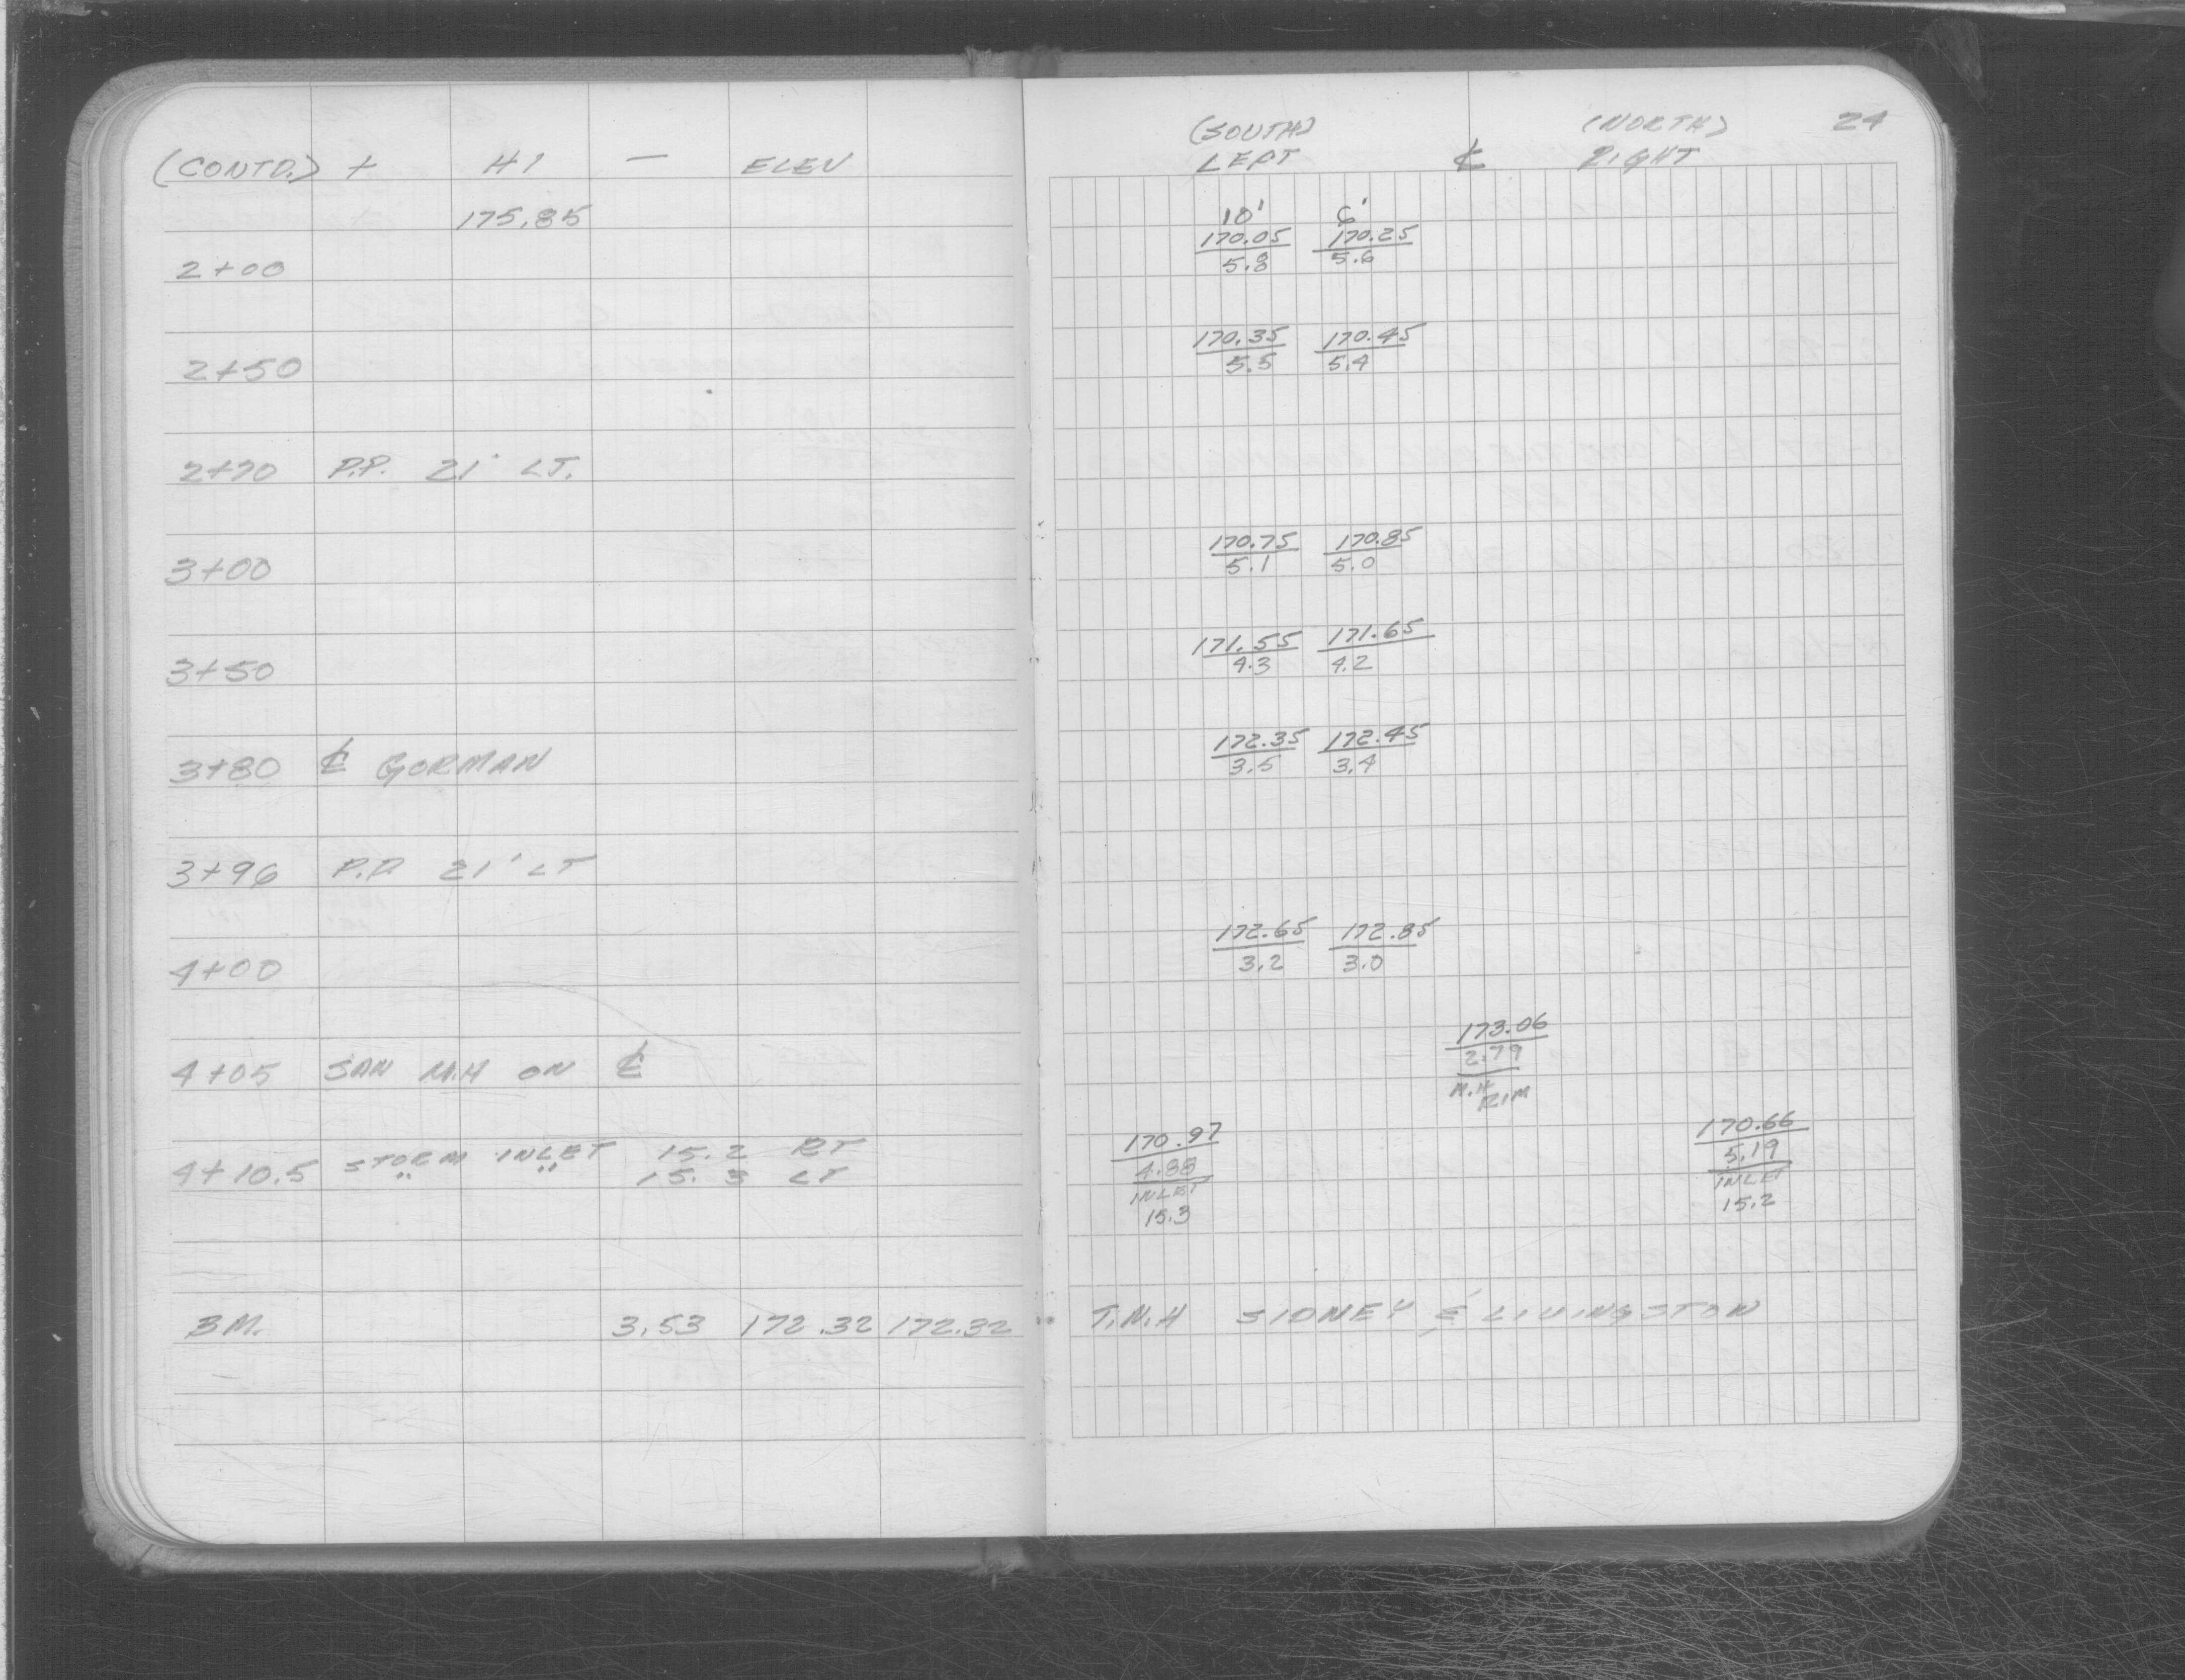 (CONTD.) + HI — ELEV
175.85
2+00
2+50
2+70 P.P. 21' LT.
3+00
3+50
3+80 ℄ GORMAN
3+96 P.P 21' LT
4+00
4+05 SAN M.H ON ℄
4+10.5 STORM INLET 15.2 RT
" " 15.3 LT
BM. 3.53 172.32 172.32
(SOUTH) (NORTH) 24
LEFT ℄ RIGHT
10' 6'
170.05 170.25
5.8 5.6
170.35 170.45
5.5 5.4
170.75 170.85
5.1 5.0
171.55 171.65
4.3 4.2
172.35 172.45
3.5 3.4
172.65 172.85
3.2 3.0
173.06
2.79
M.H
RIM
170.97 170.66
4.88 5.19
INLET INLET
15.3 15.2
T.N.H SIDNEY & LIVINGSTON